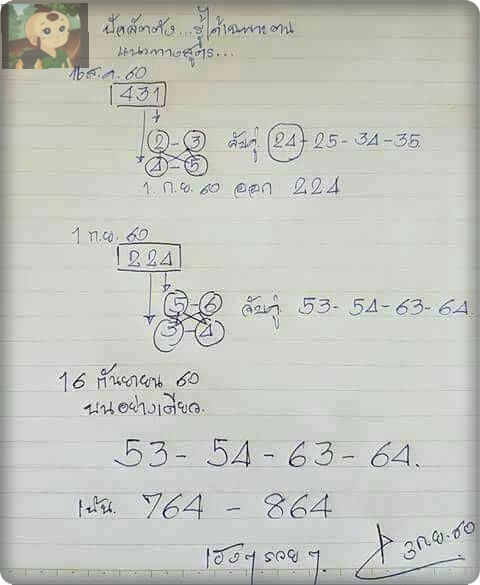 ปัจจัตตัง...รู้ได้เฉพาะตน
แนวทางสูตร...
16 ส.ค. 60
431
2 - 3 จับคู่ 24 - 25 - 34 - 35
4 - 5
1. ก.ย. 60 ออก 224
1 ก.ย. 60
224
5 - 6 จับคู่ 53 - 54 - 63 - 64
3 - 4
16 กันยายน 60
บนอย่างเดียว.
53 - 54 - 63 - 64.
เน้น. 764 - 864
เฮงๆ รวยๆ 3 ก.ย. 60